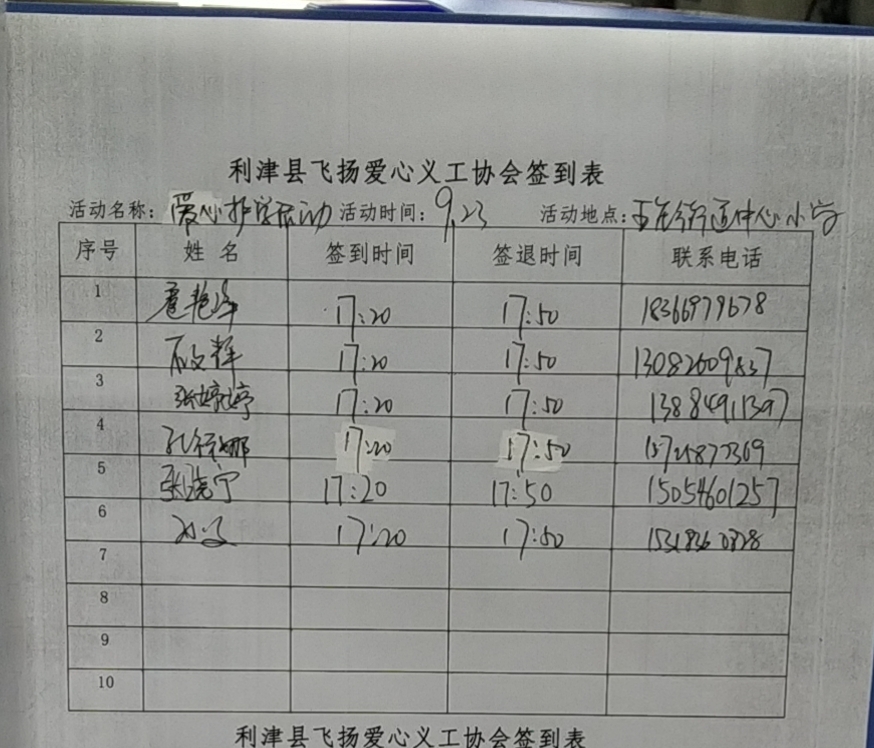 利津县飞扬爱心义工协会签到表
活动名称：爱心护学活动 活动时间：9.23 活动地点：中心小学
序号 姓名 签到时间 签退时间 联系电话
1 17:20 17:50 18366979678
2 17:20 17:50 13082609837
3 张婷婷 17:20 17:50 13884911397
4 17:20 17:50
5 张晓宁 17:20 17:50 15054601257
6 17:20 17:50
7
8
9
10
利津县飞扬爱心义工协会签到表